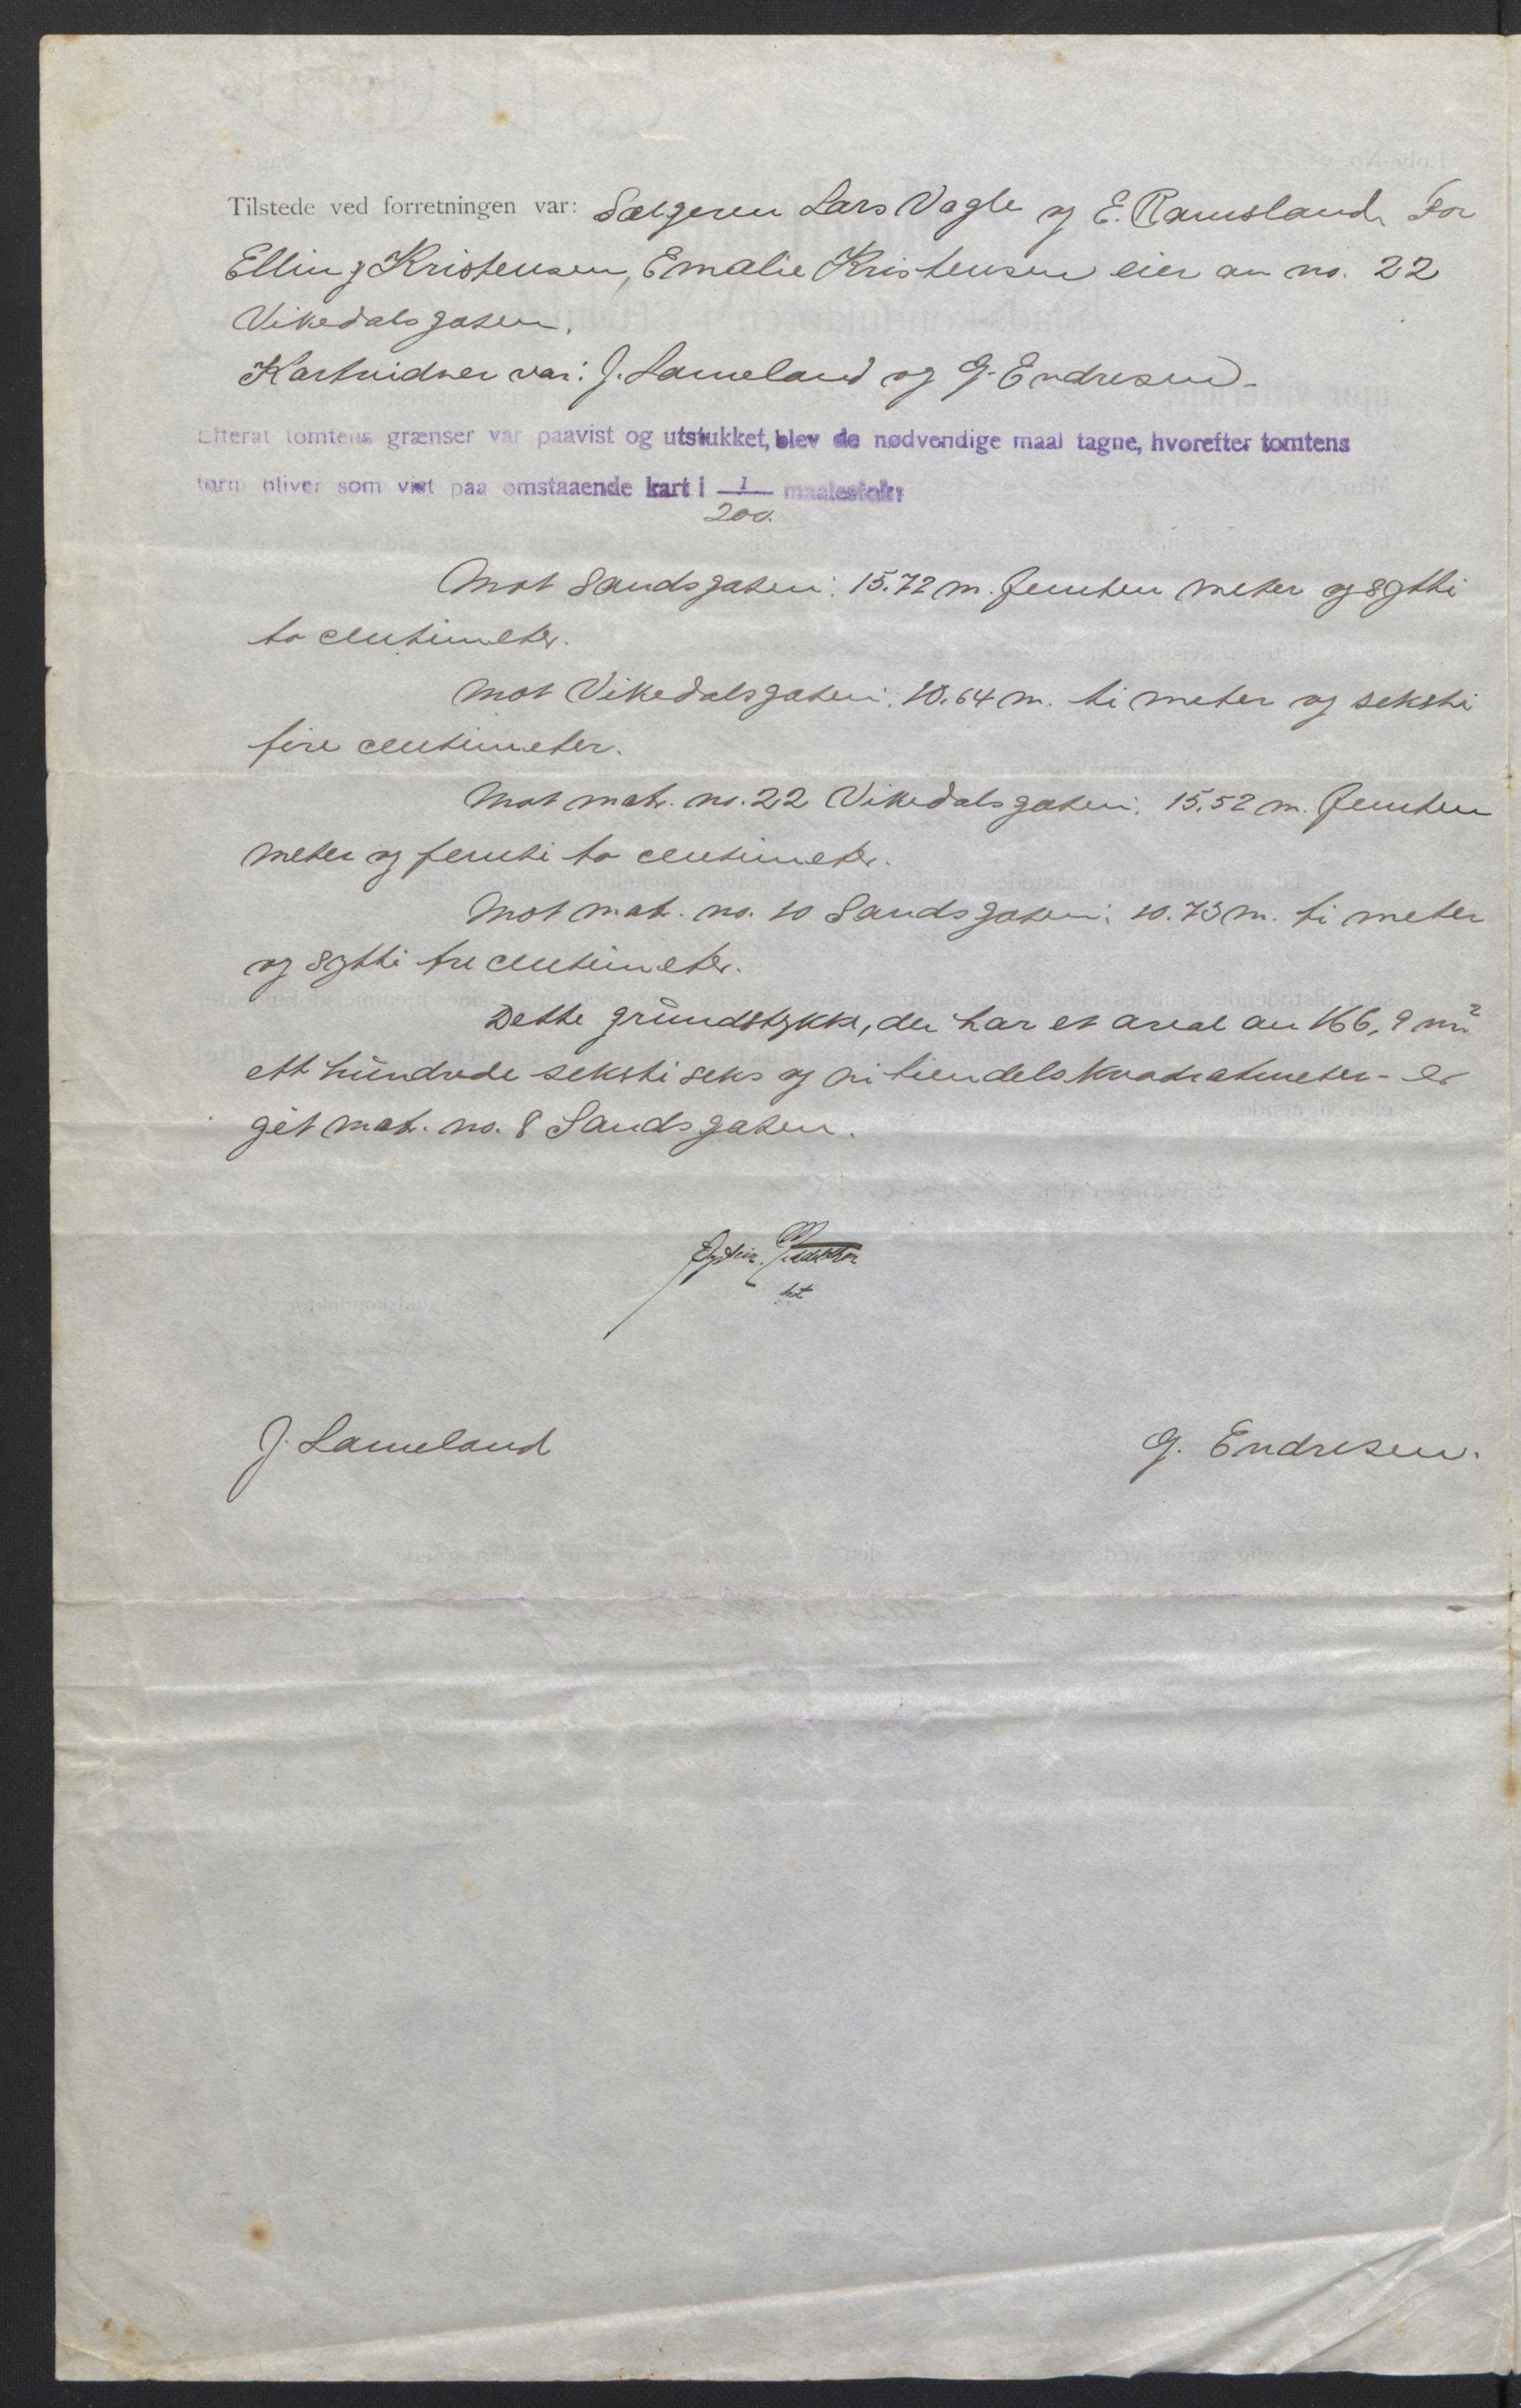 Tilstede ved forretningen var: Sælgeren Lars Vagle og E. Ramsland. For
Elling Kristensen, Emalie Kristensen eier av no. 22
Vikedalsgaten.
Kartvidner var: J. Lameland og G. Endresen.
Efterat tomtens grænser var paavist og utstukket, blev de nødvendige maal tagne, hvorefter tomtens
form bliver som vist paa omstaaende kart i 1/200 maalestok:
Mot Sandsgaten: 15.72 m. femten meter og sytti
to centimeter.
Mot Vikedalsgaten: 10.64 m. ti meter og seksti
fire centimeter.
Mot matr. no. 22 Vikedalsgaten: 15.52 m. femten
meter og femti to centimeter.
Mot mat. no. 10 Sandsgaten: 10.73 m. ti meter
og sytti tre centimeter.
Dette grundstykke, der har et areal av 166,9 m²
ett hundrede seksti seks og ni tiendels kvadratmeter - er
git mat. no. 8 Sandsgaten.
J. Lameland G. Endresen.